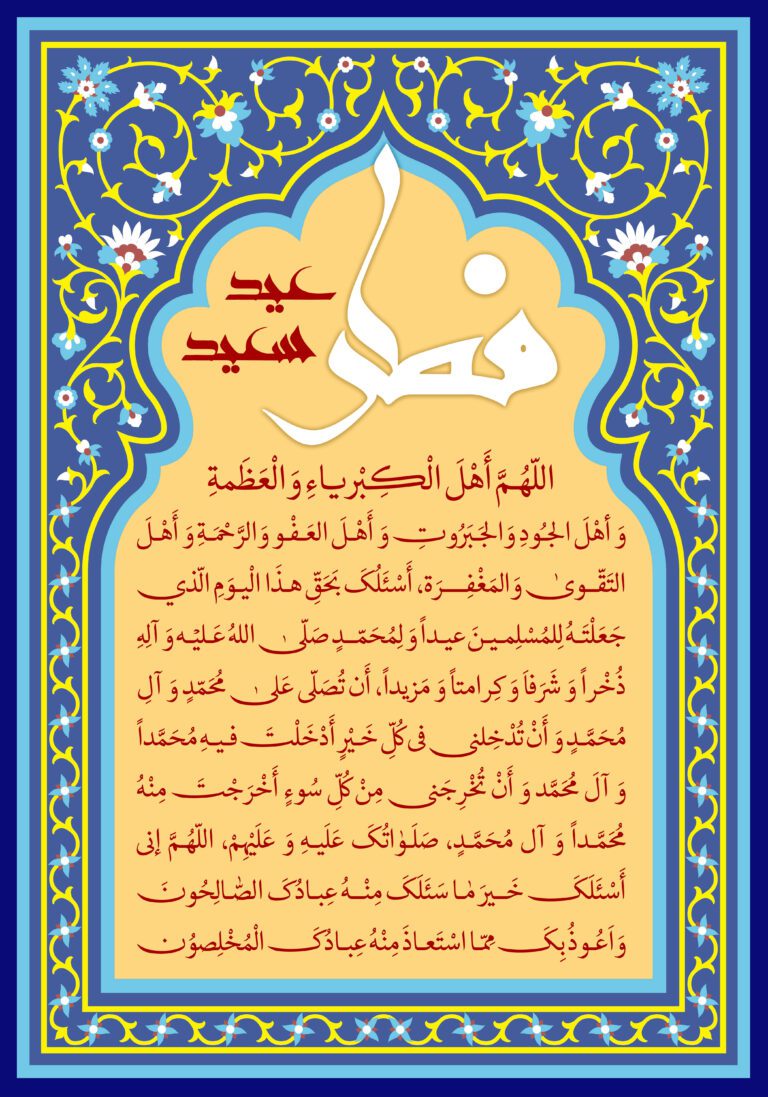 عید
سعید
فطر
اللّهُمَّ أَهْلَ الْکِبْریاءِ وَالْعَظَمةِ
وَ أَهْلَ الجُودِ وَالجَبَرُوتِ وَ أَهْلَ العَفْو وَالرَّحْمَةِ وَ أَهْلَ
التَقّوىٰ وَالمَغْفِرَة، أَسْئَلُکَ بَحَقِّ هذَا الْیَومِ الّذي
جَعَلْتَهُ لِلمُسْلِمینَ عیداً وَ لِمُحَمّدٍ صَلّىٰ اللهُ عَلیْه وَ آلِهِ
ذُخْراً وَ شَرَفاً وَ کِرامتاً وَ مَزیداً، أَن تُصَلّی عَلىٰ مُحَمّدٍ وَ آلِ
مُحَمَّدٍ وَ أَنْ تُدْخِلنی فی کُلِّ خَیْرٍ أَدْخَلْتَ فیهِ مُحَمَّداً
وَ آلَ مُحَمَّد وَ أَنْ تُخْرِجَنی مِنْ کُلِّ سُوءٍ أَخْرَجْتَ مِنْهُ
مُحَمَّداً وَ آل مُحَمَّدٍ، صَلَوٰاتُکَ عَلَیهِ وَ عَلَیهِمْ، اللّهُمَّ إنی
أَسْئَلَکَ خَیرَ مٰا سَئَلَکَ مِنْهُ عِبادُکَ الصّٰالِحُونَ
وَ اَعُوذُ بِکَ مِمّا اسْتَعاذَ مِنْهُ عِبادُکَ الْمُخْلِصوُن